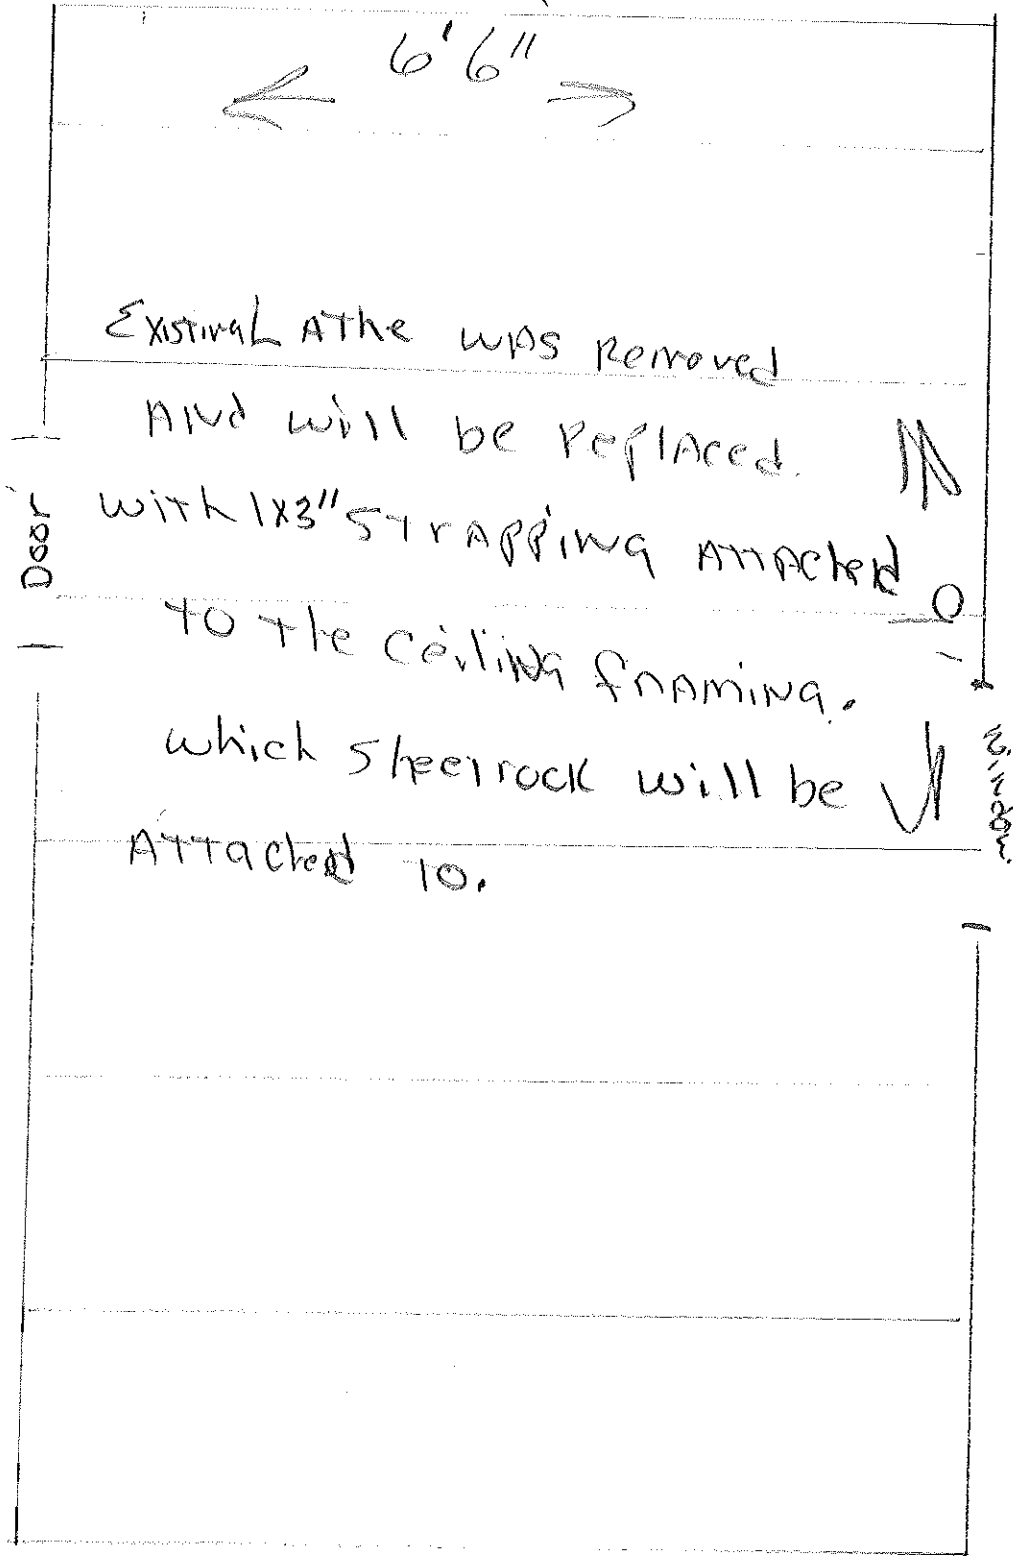 6'6"
Existing Lathe was Removed
And will be replaced.
with 1x3" strapping Attached
to the ceiling framing.
which sheetrock will be
Attached to.
Door
Window